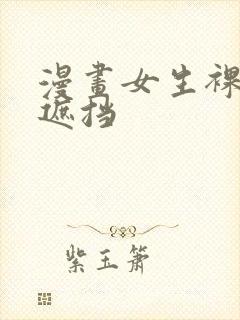 漫畫女生裸
遮挡
紫玉箫